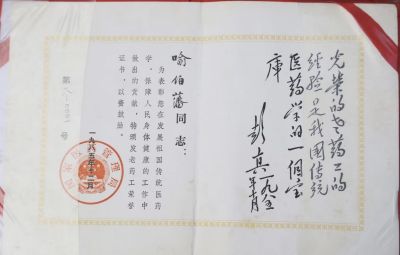 光荣的老药工的
经验是我国传统
医药学的一个宝
库
彭真一九八五
年十月
喻伯藩同志：
为表彰您在发展祖国传统医药
学、保障人民身体健康的工作中
做出的贡献，特颁发老药工荣誉
证书，以资鼓励。
一九八五年十二月
国家医药管理局
第
号